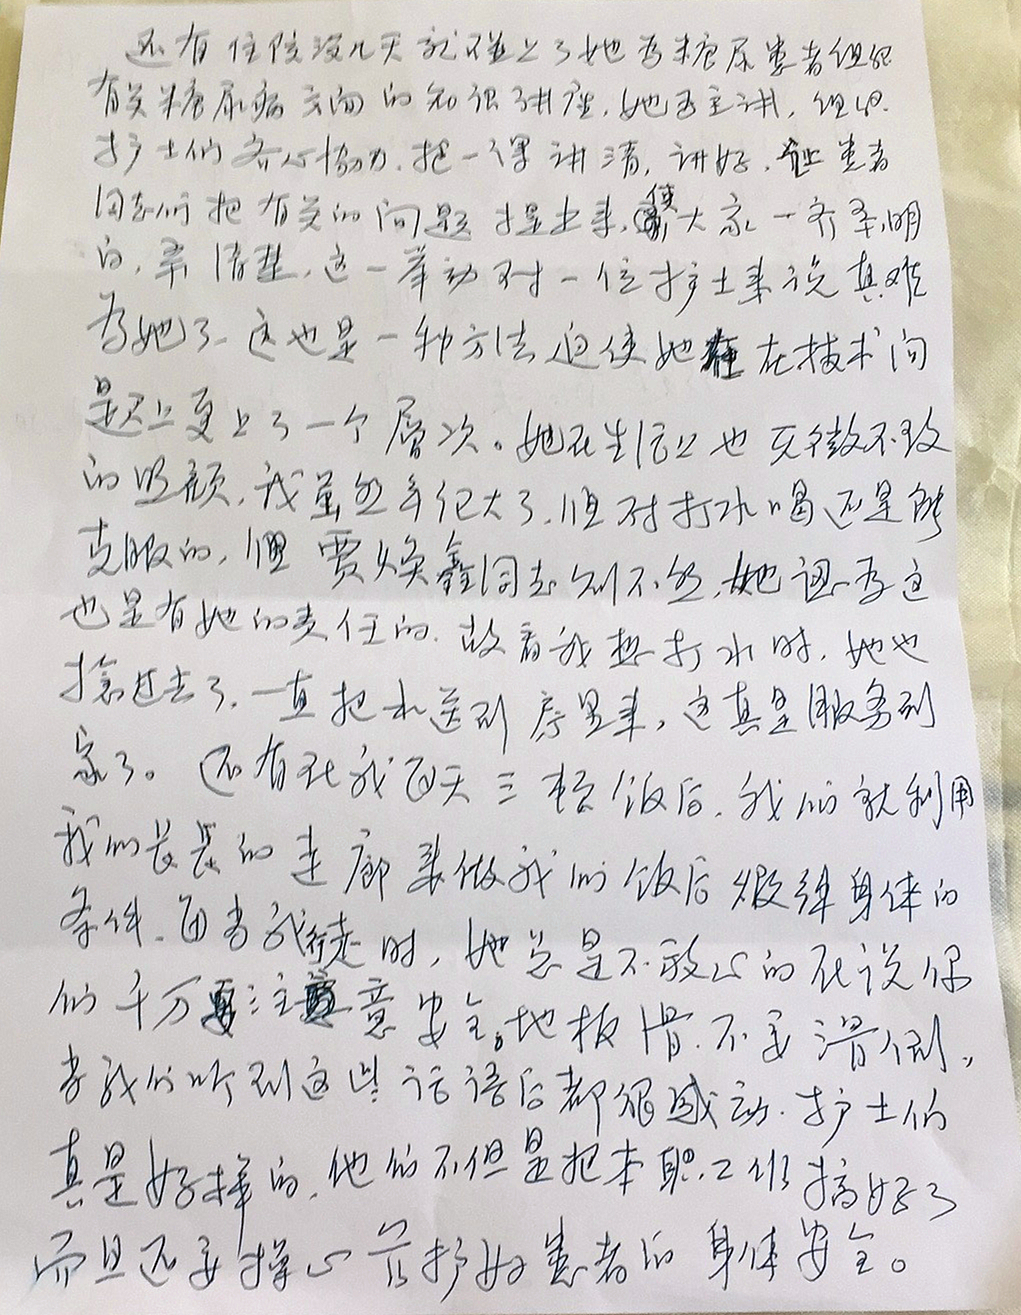 还有住院没几天就碰上了她为糖尿患者组织
有关糖尿病方面的知识讲座,她为主讲,组织
护士们齐心协力,把一课讲清,讲好,让患者
同志们把有关的问题提出来,使大家一齐弄明
白,弄清楚,这一举动对一位护士来说真难
为她了,这也是一种方法迫使她在技术问
题上更上了一个层次。她在生活上也无微不致
的照顾,我虽然年纪大了,但对打水喝还是能
克服的,但贾焕鑫同志则不然,她认为这
也是有她的责任的,故看我想打水时,她也
抢过去了,一直把水送到房里来,这真是服务到
家了。还有在我每天三餐饭后,我们就利用
我们长长的走廊来做我们饭后煅练身体的
条件,每当我徒时,她总是不放心的在说你
们千万要注意安全。地板滑,不要滑倒,
当我们听到这些话语后都很感动,护士们
真是好样的,他们不但是把本职工作搞好了
而且还要操心着护好患者的身体安全。